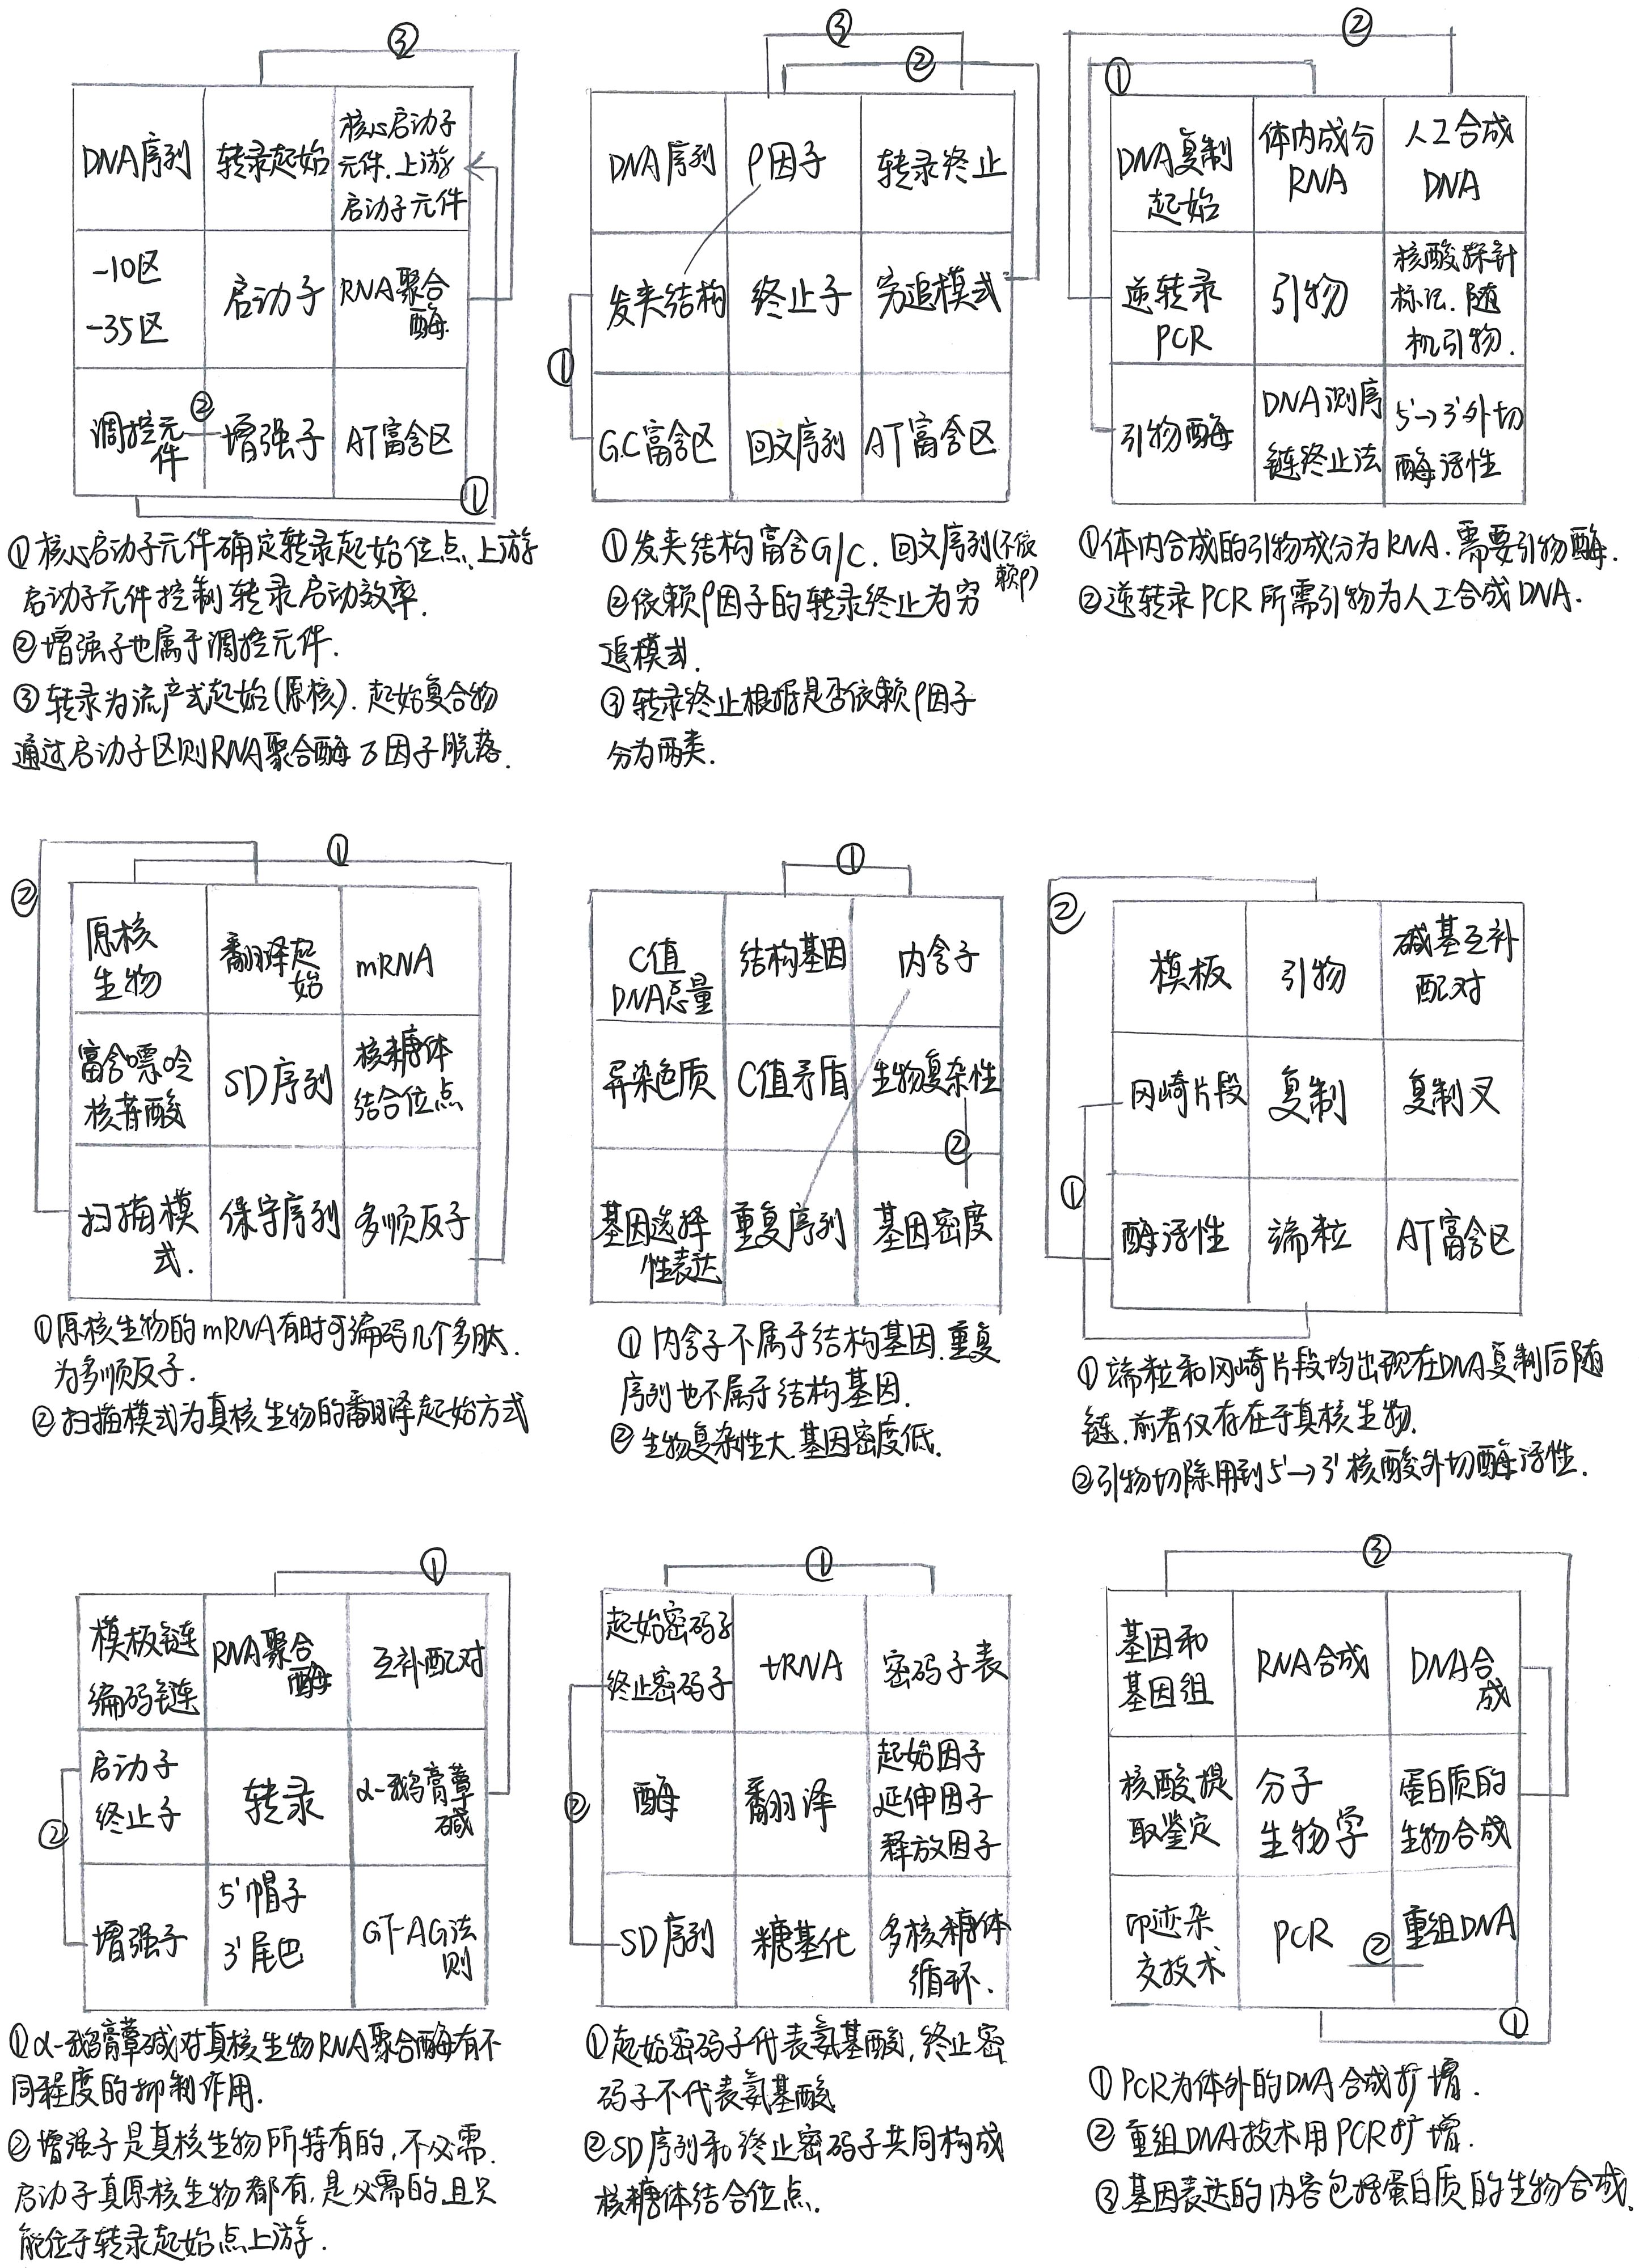 ③
DNA序列
转录起始
核心启动子
元件.上游
启动子元件
-10区
-35区
启动子
RNA聚合
酶
调控元
件
②
增强子
AT富含区
①
①核心启动子元件确定转录起始位点、上游
启动子元件控制转录启动效率.
②增强子也属于调控元件.
③转录为流产式起始(原核).起始复合物
通过启动子区则RNA聚合酶σ因子脱落.
③
②
DNA序列
ρ因子
转录终止
发夹结构
终止子
穷追模式
①
G.C富含区
回文序列
AT富含区
①发夹结构富含G/C.回文序列(不依
赖ρ)
②依赖ρ因子的转录终止为穷
追模式.
③转录终止根据是否依赖ρ因子
分为两类.
②
①
DNA复制
起始
体内成分
RNA
人工合成
DNA
逆转录
PCR
引物
核酸探针
标记.随
机引物.
引物酶
DNA测序
链终止法
5'→3'外切
酶活性
①体内合成的引物成分为RNA.需要引物酶.
②逆转录PCR所需引物为人工合成DNA.
①
②
原核
生物
翻译起
始
mRNA
富含嘌呤
核苷酸
SD序列
核糖体
结合位点
扫描模
式.
保守序列
多顺反子
①原核生物的mRNA有时可编码几个多肽.
为多顺反子.
②扫描模式为真核生物的翻译起始方式
①
C值
DNA总量
结构基因
内含子
异染色质
C值矛盾
生物复杂性
②
基因选择
性表达
重复序列
基因密度
①内含子不属于结构基因.重复
序列也不属于结构基因.
②生物复杂性大.基因密度低.
②
模板
引物
碱基互补
配对
冈崎片段
复制
复制叉
①
酶活性
端粒
AT富含区
①端粒和冈崎片段均出现在DNA复制后随
链.前者仅存在于真核生物.
②引物切除用到5'→3'核酸外切酶活性.
①
模板链
编码链
RNA聚合
酶
互补配对
启动子
终止子
转录
α-鹅膏蕈
碱
②
增强子
5'帽子
3'尾巴
GT-AG法
则
①α-鹅膏蕈碱对真核生物RNA聚合酶有不
同程度的抑制作用.
②增强子是真核生物所特有的,不必需.
启动子真原核生物都有,是必需的且只
能位于转录起始点上游.
①
起始密码子
终止密码子
tRNA
密码子表
②
酶
翻译
起始因子
延伸因子
释放因子
SD序列
糖基化
多核糖体
循环.
①起始密码子代表氨基酸,终止密
码子不代表氨基酸
②SD序列和终止密码子共同构成
核糖体结合位点.
③
基因和
基因组
RNA合成
DNA合
成
核酸提
取鉴定
分子
生物学
蛋白质的
生物合成
印迹杂
交技术
PCR
②
重组DNA
①
①PCR为体外的DNA合成扩增.
②重组DNA技术用PCR扩增.
③基因表达的内容包括蛋白质的生物合成.